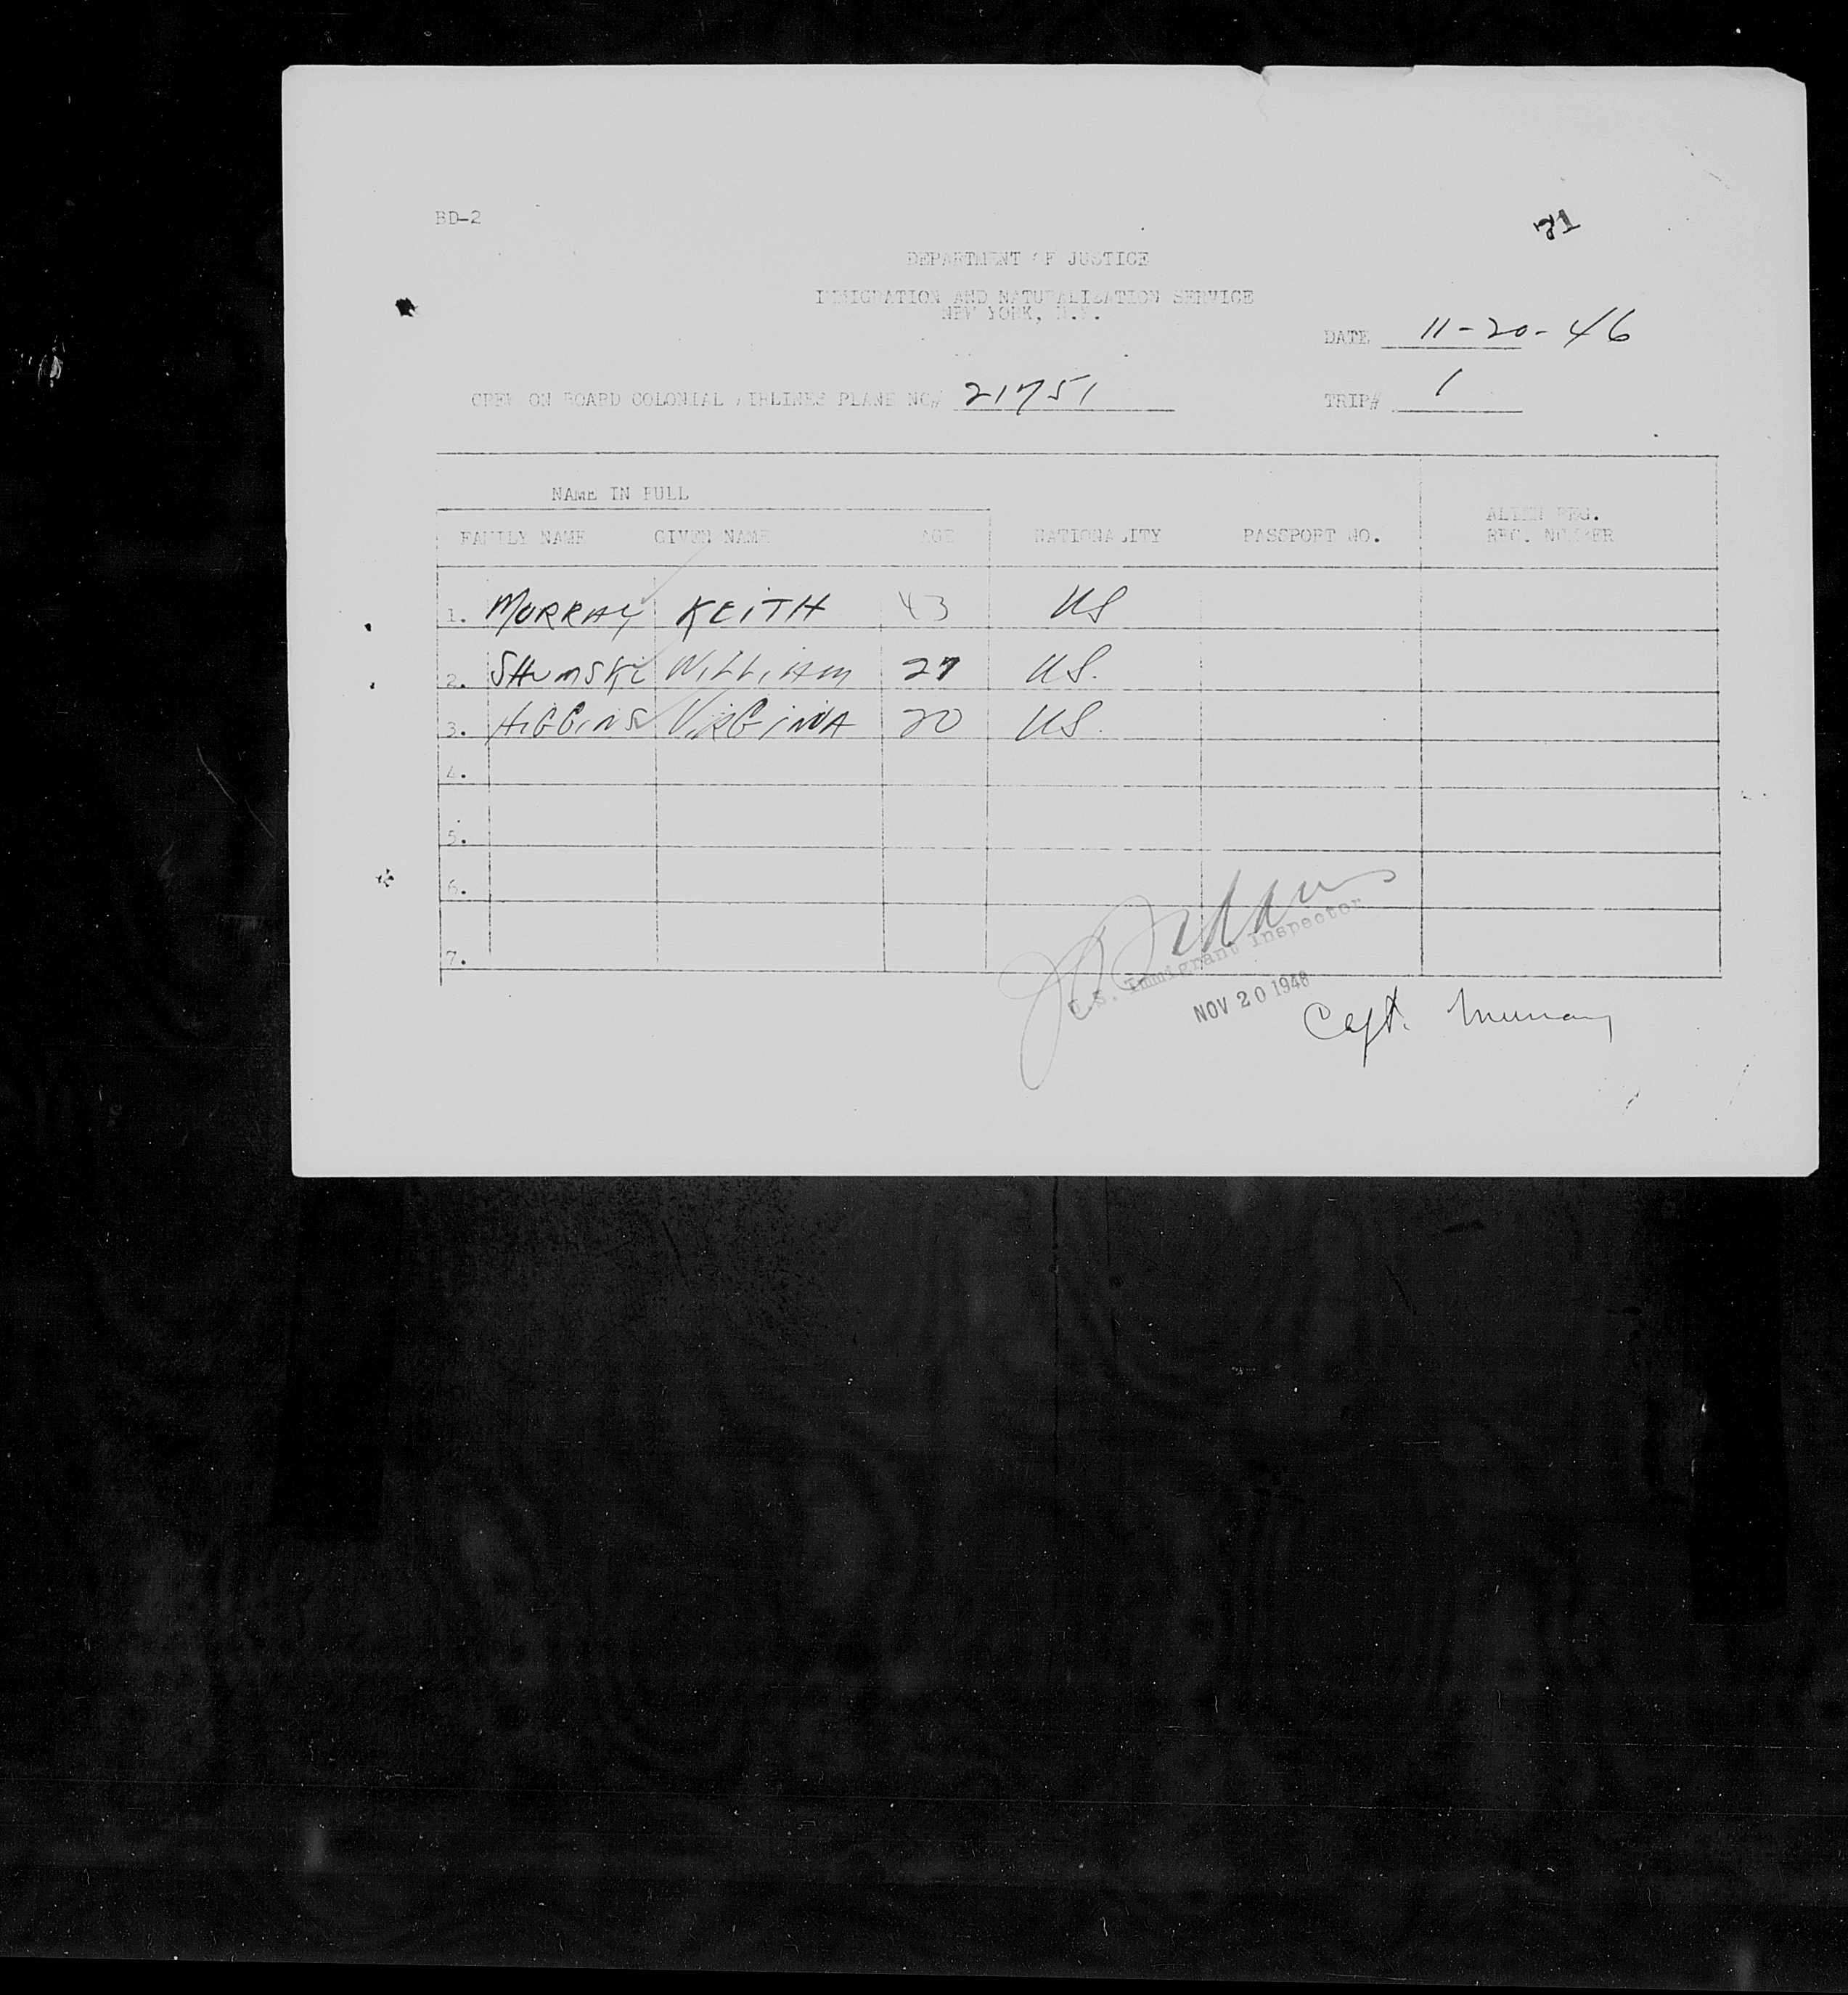 BD-2
21
DEPARTMENT OF JUSTICE
IMMIGRATION AND NATURALIZATION SERVICE
NEW YORK, N.Y.
DATE 11-20-46
CREW ON BOARD COLONIAL AIRLINES PLANE NO# 21751 TRIP# 1
NAME IN FULL
FAMILY NAME GIVEN NAME AGE NATIONALITY PASSPORT NO. ALIEN REG. REC. NUMBER
1. MURRAY KEITH 43 US
2. SHUMSKI WILLIAM 27 US.
3. HIGGINS VIRGINIA 20 US.
4.
5.
6.
7.
U.S. Immigrant Inspector
NOV 20 1946
Capt. Murray